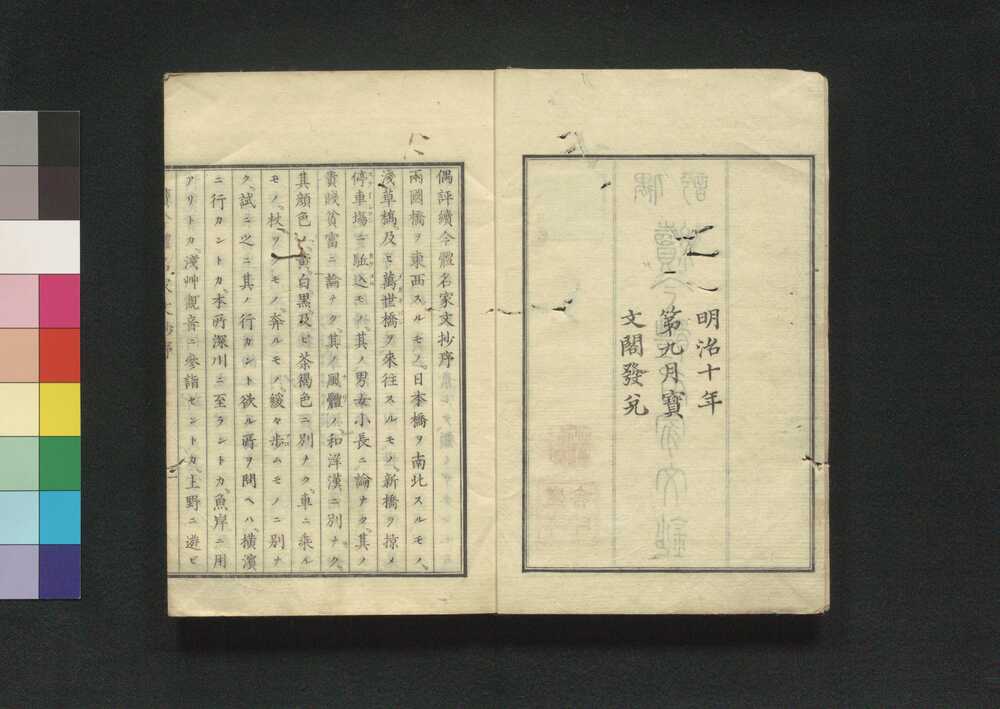 明治十年
第九月寶
文閣發兌
偶評續今體名家文抄序
兩國橋ヲ東西スルモノ、日本橋ヲ南北スルモノ、
淺草橋、及ヒ萬世橋ヲ來往スルモノ、新橋ヲ掠メ
停車場ニ馳込モノ、其ノ男女小長ニ論ナク、其ノ
貴賤貧富ニ論ナク、其ノ風體ノ和洋漢ニ別ナク、
其顏色ノ黄白黒、及ビ茶褐色ニ別ナク、車ニ乘ル
モノ、杖ヲクモノ、奔ルモノ、緩々歩ムモノニ別ナ
ク、試ニ之ニ其ノ行カント欲ル所ヲ問ヘハ、橫濱
ニ行カントカ、本所深川ニ至ラントカ、魚岸ニ用
アリトカ、淺艸觀音ニ參詣セントカ、上野ニ遊ビ